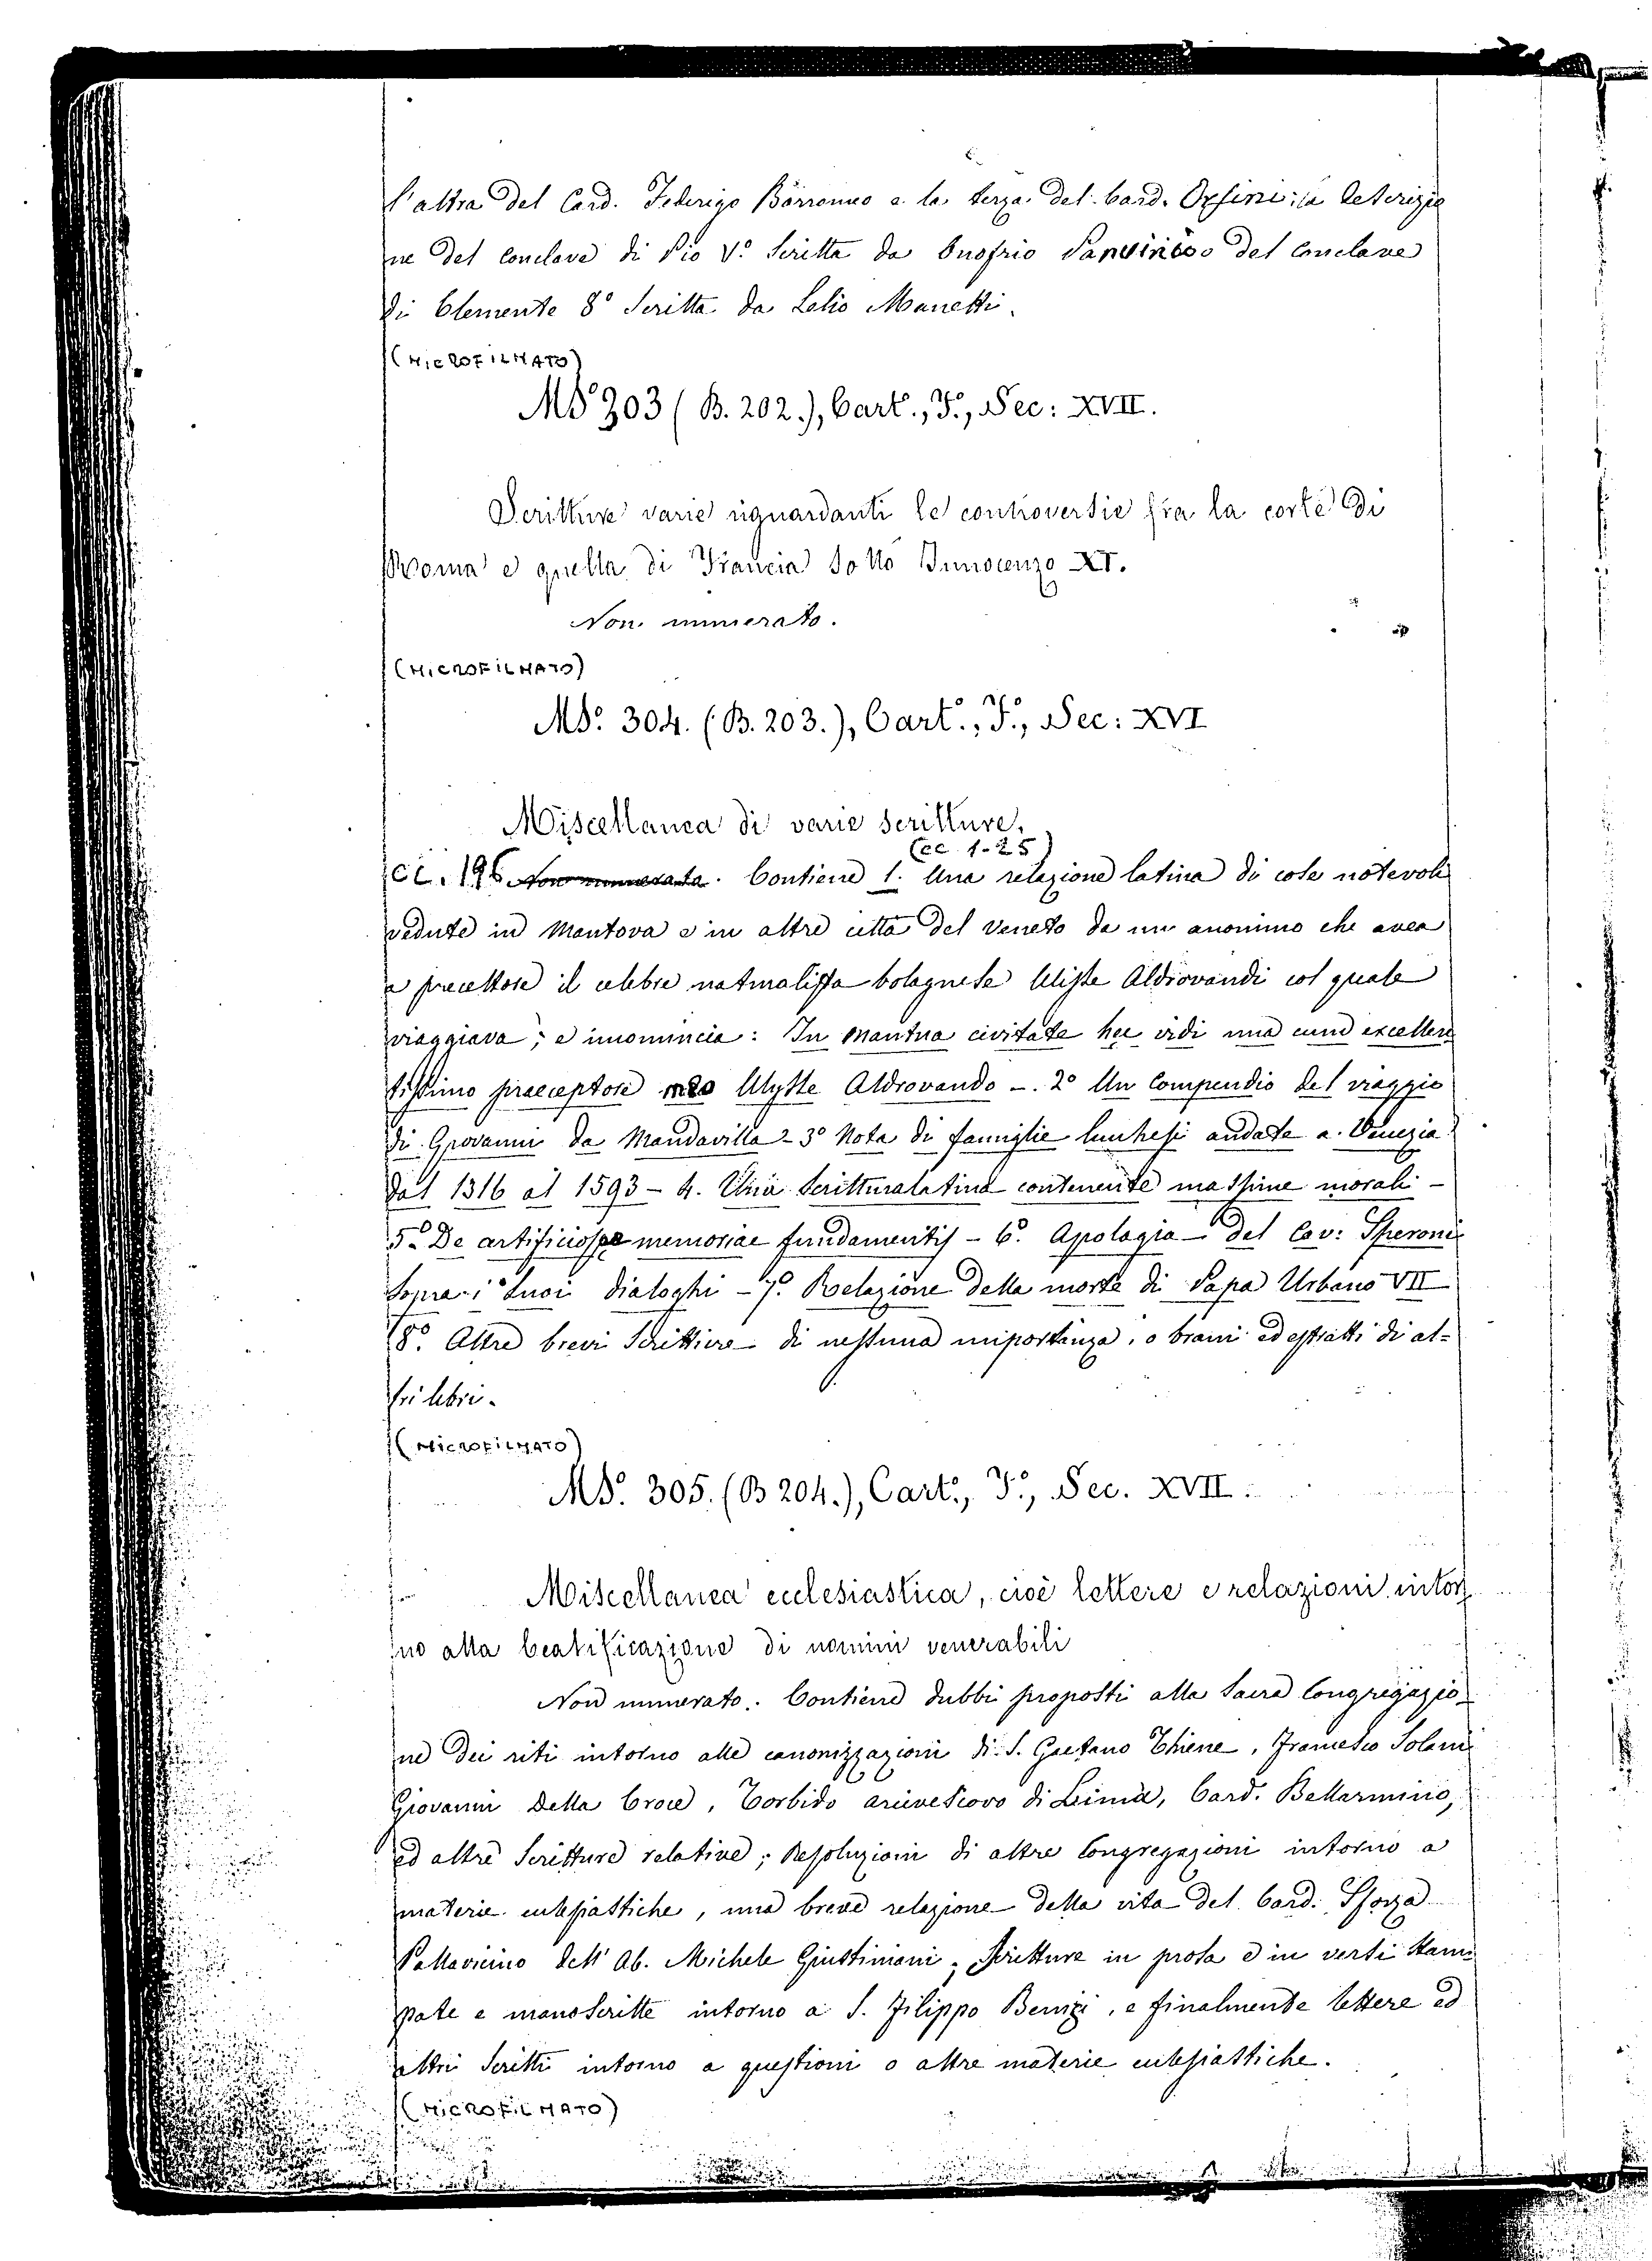 l'altra del Card. Federigo Borromeo e la terza del Card. Orsini; la descrizio
ne del conclave di Pio V.° scritta da Onofrio Panvinio o del conclave
di Clemente 8° scritta da Lelio Manetti.
(MICROFILMATO)
MS° 303 (B. 202.), Cart.°, F.°, Sec: XVII.
Scritture varie riguardanti le controversie fra la corte di
Roma e quella di Francia sotto Innocenzo XI.
Non numerato.
(MICROFILMATO)
MS.° 304. (B. 203.), Cart.°, F.°, Sec: XVI
Miscellanea di varie scritture.
(cc. 1-25)
CC. 196 Non numerata. Contiene 1. Una relazione latina di cose notevoli
vedute in Mantova e in altre città del Veneto da un anonimo che avea
a precettore il celebre naturalista bolognese Ulisse Aldrovandi col quale
viaggiava; e incomincia: In Mantua civitate hec vidi una cum excellen
tissimo praeceptore meo Ulysse Aldrovando -. 2° Un Compendio del viaggio
di Giovanni da Mandavilla - 3° Nota di famiglie lucchesi andate a Venezia
dal 1316 al 1593 - 4. Una scrittura latina contenente massime morali -
5.° De artificiosae memoriae fundamentis - 6.° Apologia del Cav: Speroni
sopra i suoi dialoghi - 7.° Relazione della morte di Papa Urbano VII
8.° Altre brevi scritture di nessuna importanza, o brani ed estratti di al-
tri libri.
(MICROFILMATO)
MS.° 305. (B 204.), Cart.°, F.°, Sec. XVII.
Miscellanea ecclesiastica, cioè lettere e relazioni intor
no alla beatificazione di uomini venerabili
Non numerato. Contiene dubbi proposti alla Sacra Congregazio
ne dei riti intorno alle canonizzazioni di S. Gaetano Thiene, Francesco Solani
Giovanni della Croce, Torbido arcivescovo di Lima, Card. Bellarmino,
ed altre scritture relative; Resoluzioni di altre Congregazioni intorno a
materie ecclesiastiche, una breve relazione della vita del Card. Sforza
Pallavicino dell' Ab. Michele Giustiniani; Scritture in prosa e in versi stam
pate e manoscritte intorno a S. Filippo Benizi, e finalmente lettere ed
altri scritti intorno a questioni o altre materie ecclesiastiche.
(MICROFILMATO)